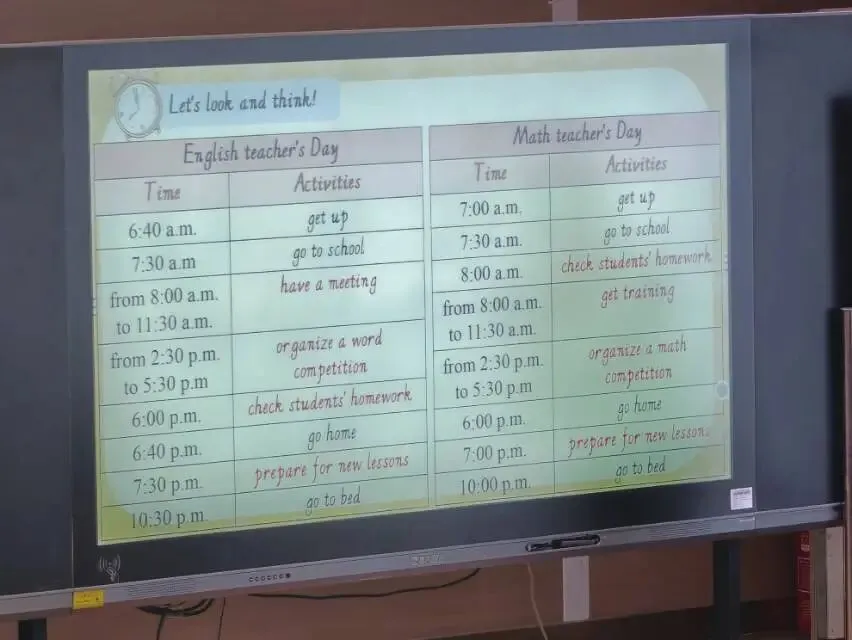 Let's look and think!
English teacher's Day
Time Activities
6:40 a.m. get up
7:30 a.m go to school
from 8:00 a.m. have a meeting
to 11:30 a.m.
from 2:30 p.m. organize a word
to 5:30 p.m competition
6:00 p.m. check students' homework
6:40 p.m. go home
7:30 p.m. prepare for new lessons
10:30 p.m. go to bed
Math teacher's Day
Time Activities
7:00 a.m. get up
7:30 a.m. go to school
8:00 a.m. check students' homework
from 8:00 a.m. get training
to 11:30 a.m.
from 2:30 p.m. organize a math
to 5:30 p.m competition
6:00 p.m. go home
7:00 p.m. prepare for new lessons
10:00 p.m. go to bed